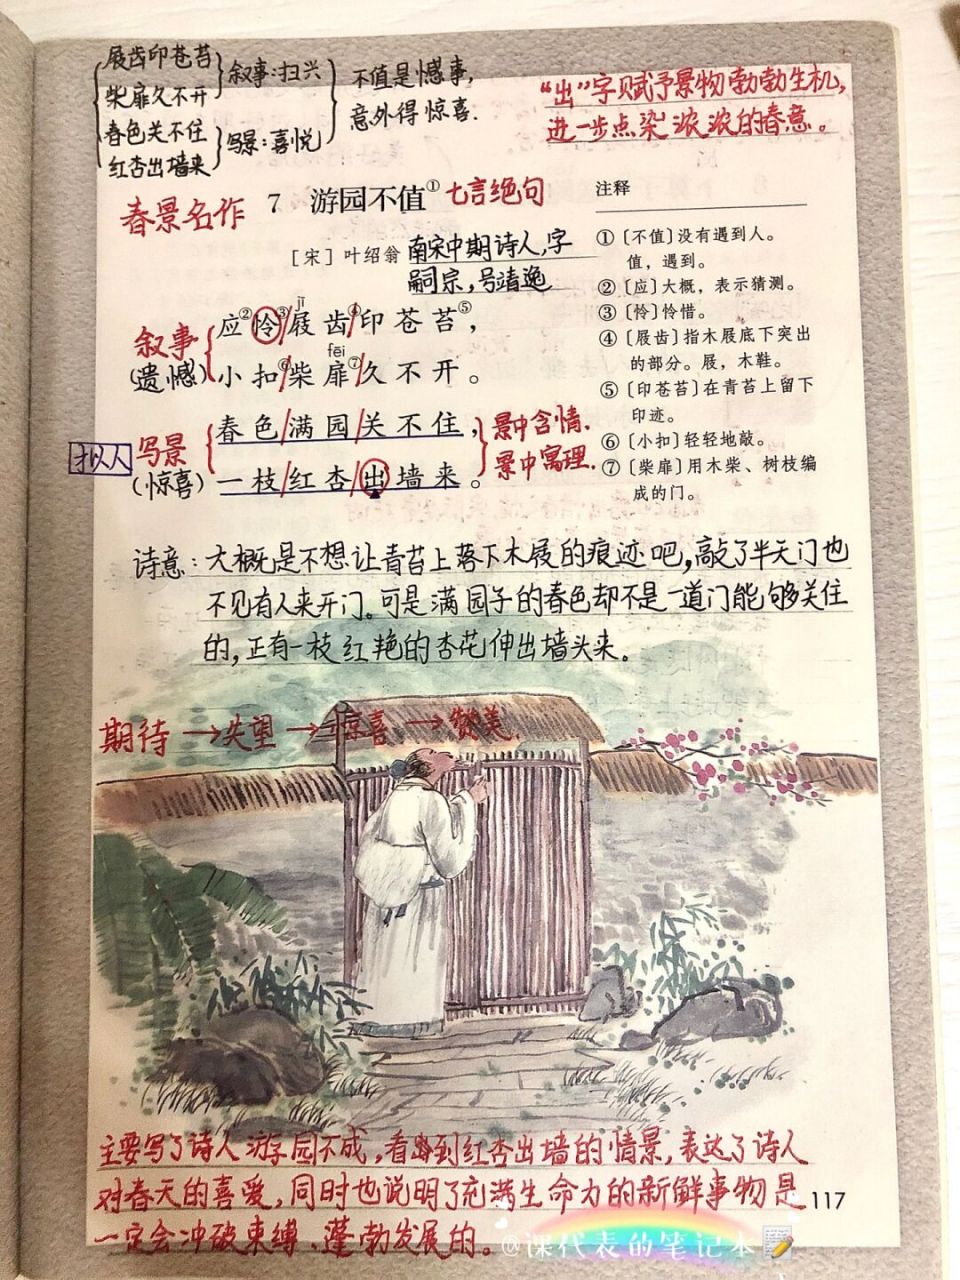 屐齿印苍苔
柴扉久不开
叙事:扫兴
春色关不住
红杏出墙来
写景:喜悦
不值是憾事,
意外得惊喜.
“出”字赋予景物勃勃生机,
进一步点染浓浓的春意。
春景名作 7 游园不值① 七言绝句
[宋] 叶绍翁 南宋中期诗人,字
嗣宗,号靖逸
叙事
(遗憾)
jī
应②怜③/屐齿④/印苍苔⑤,
fēi
小扣⑥/柴扉⑦/久不开。
拟人
写景
(惊喜)
春色/满园/关不住,
一枝/红杏/出墙来。
景中含情.
景中寓理.
注释
①〔不值〕没有遇到人。
值,遇到。
②〔应〕大概,表示猜测。
③〔怜〕怜惜。
④〔屐齿〕指木屐底下突出
的部分。屐,木鞋。
⑤〔印苍苔〕在青苔上留下
印迹。
⑥〔小扣〕轻轻地敲。
⑦〔柴扉〕用木柴、树枝编
成的门。
诗意:大概是不想让青苔上落下木屐的痕迹吧,敲了半天门也
不见有人来开门。可是满园子的春色却不是一道门能够关住
的,正有一枝红艳的杏花伸出墙头来。
期待→失望→惊喜→赞美.
主要写了诗人游园不成,看到红杏出墙的情景,表达了诗人
对春天的喜爱,同时也说明了充满生命力的新鲜事物是
一定会冲破束缚、蓬勃发展的。
117
@课代表的笔记本📝